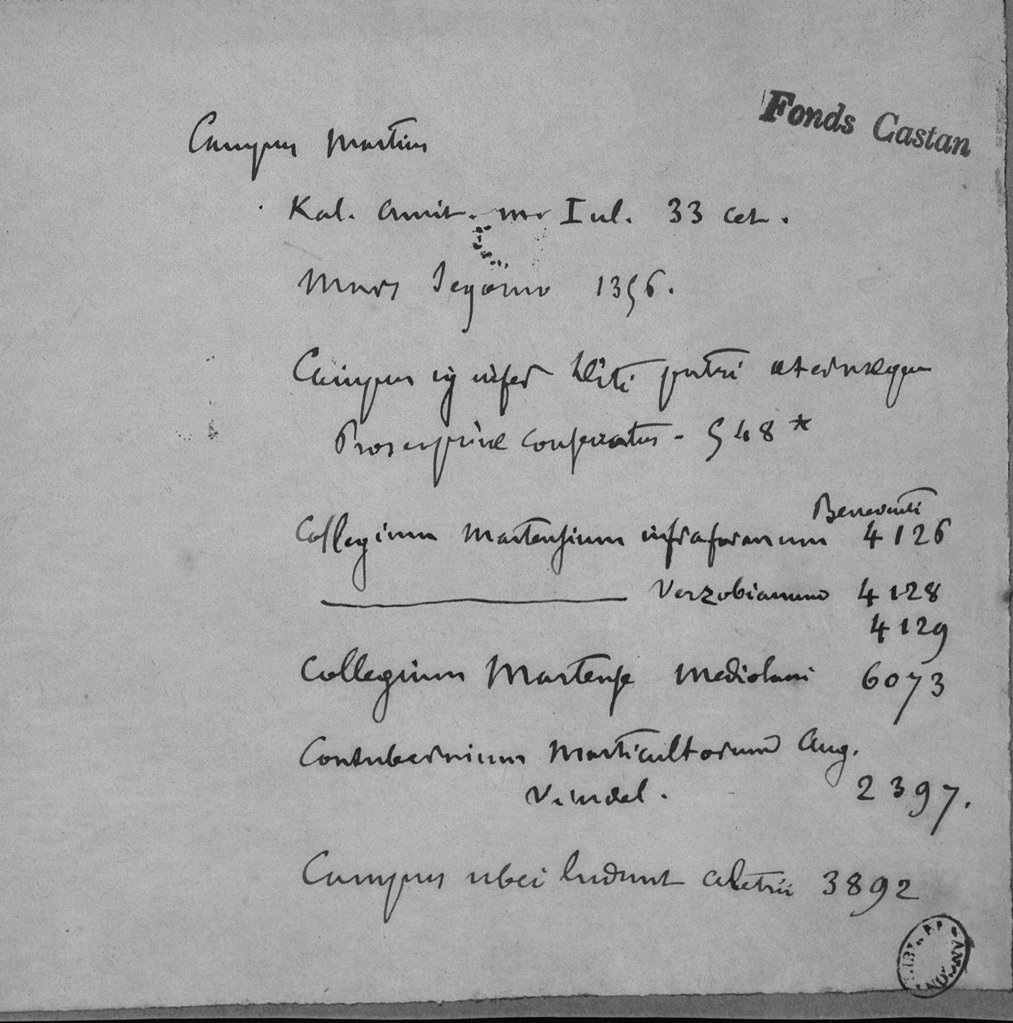 Fonds Castan
Campus Martius
Kal. Amit. Iul. 33 cet.
Mars Segomo 1356.
Campus infer Diti patri aeternaeque
Proserpinae consecratus - 548*
Beneventi
Collegium Martensium infraforanum 4126
Verzobianum 4128
4129
Collegium Martense Mediolani 6073
Contubernium Marticultorum Aug.
Vindel. 2397.
Campus ubei ludunt Aletrii 3892